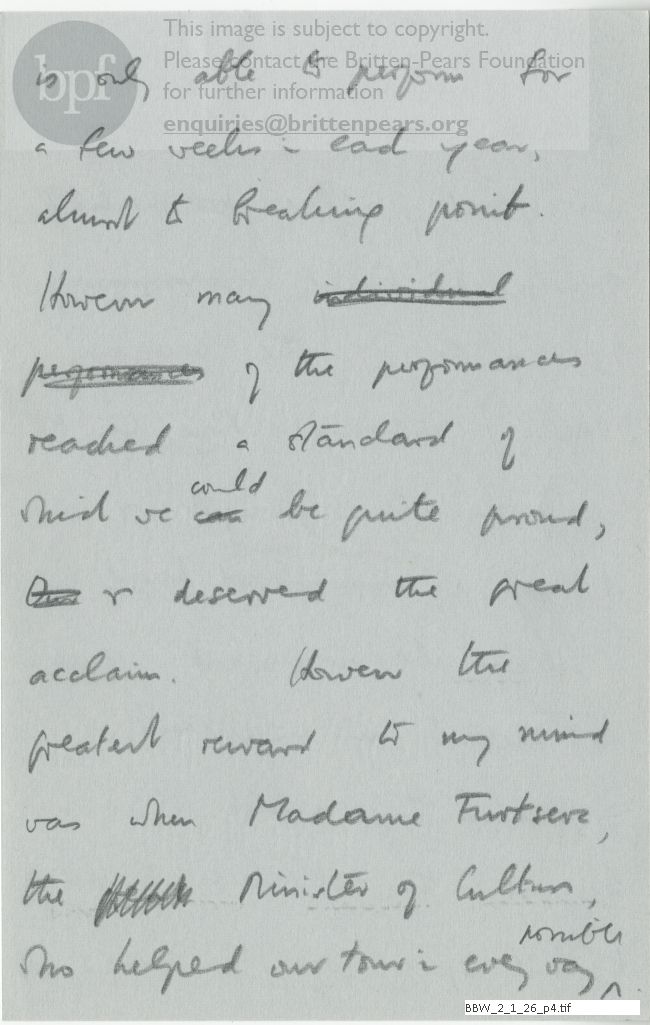 This image is subject to copyright.
bpf Please contact the Britten-Pears Foundation
for further information
enquiries@brittenpears.org
is only able to perform for
a few weeks in each year,
almost to breaking point.
However many individual
performances of the performances
reached a standard of
could
which we can be quite proud,
& deserved the great
acclaim. However the
greatest reward to my mind
was when Madame Furtseva,
the Minister of Culture,
possible
who helped our tour in every way ^.
BBW_2_1_26_p4.tif